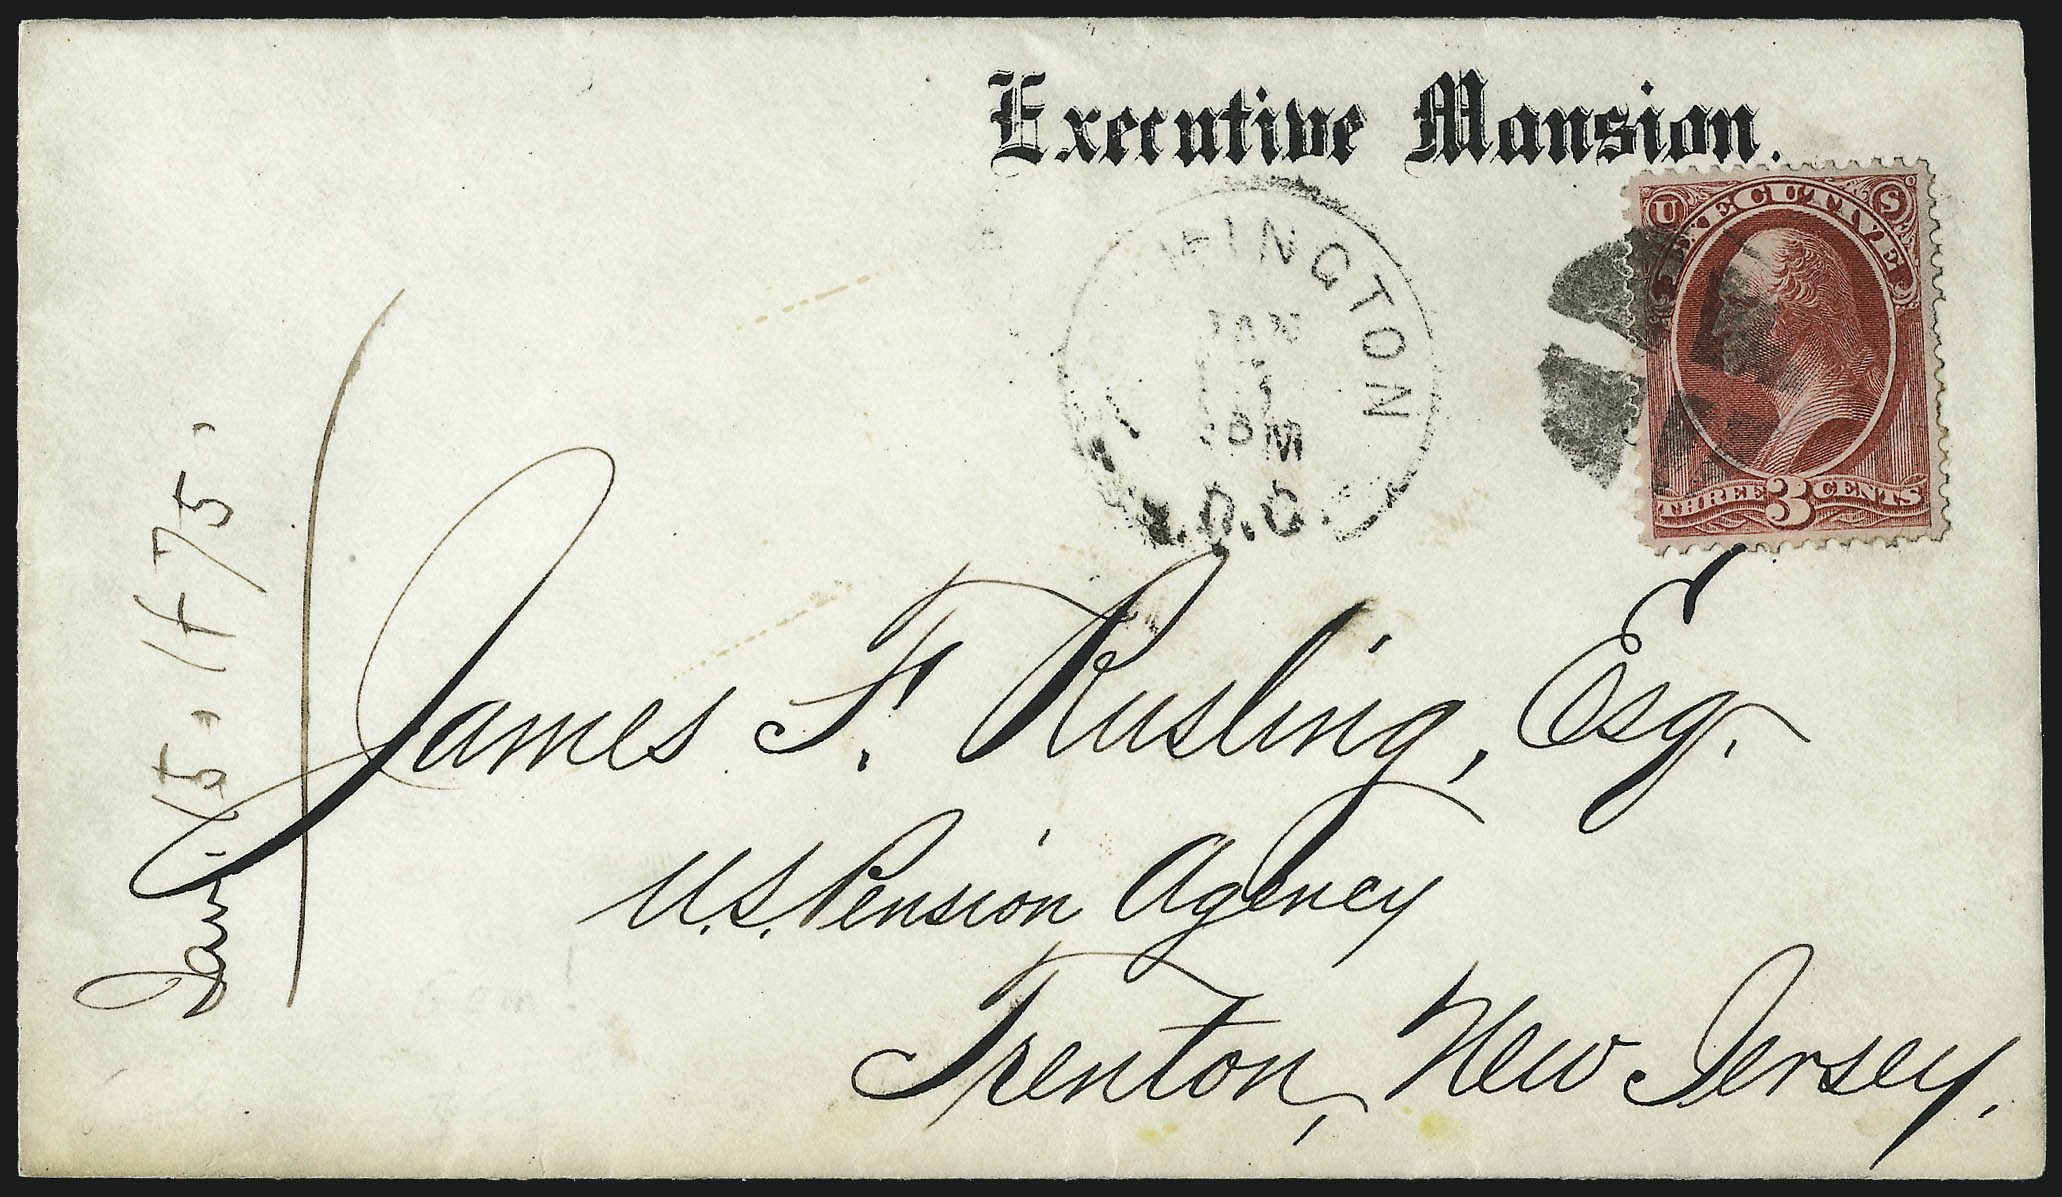 Executive Mansion.
U EXECUTIVE S
THREE 3 CENTS
INGTON
JAN
PM
D.C.
James F. Rusling, Esq.
U.S. Pension Agency
Trenton, New Jersey.